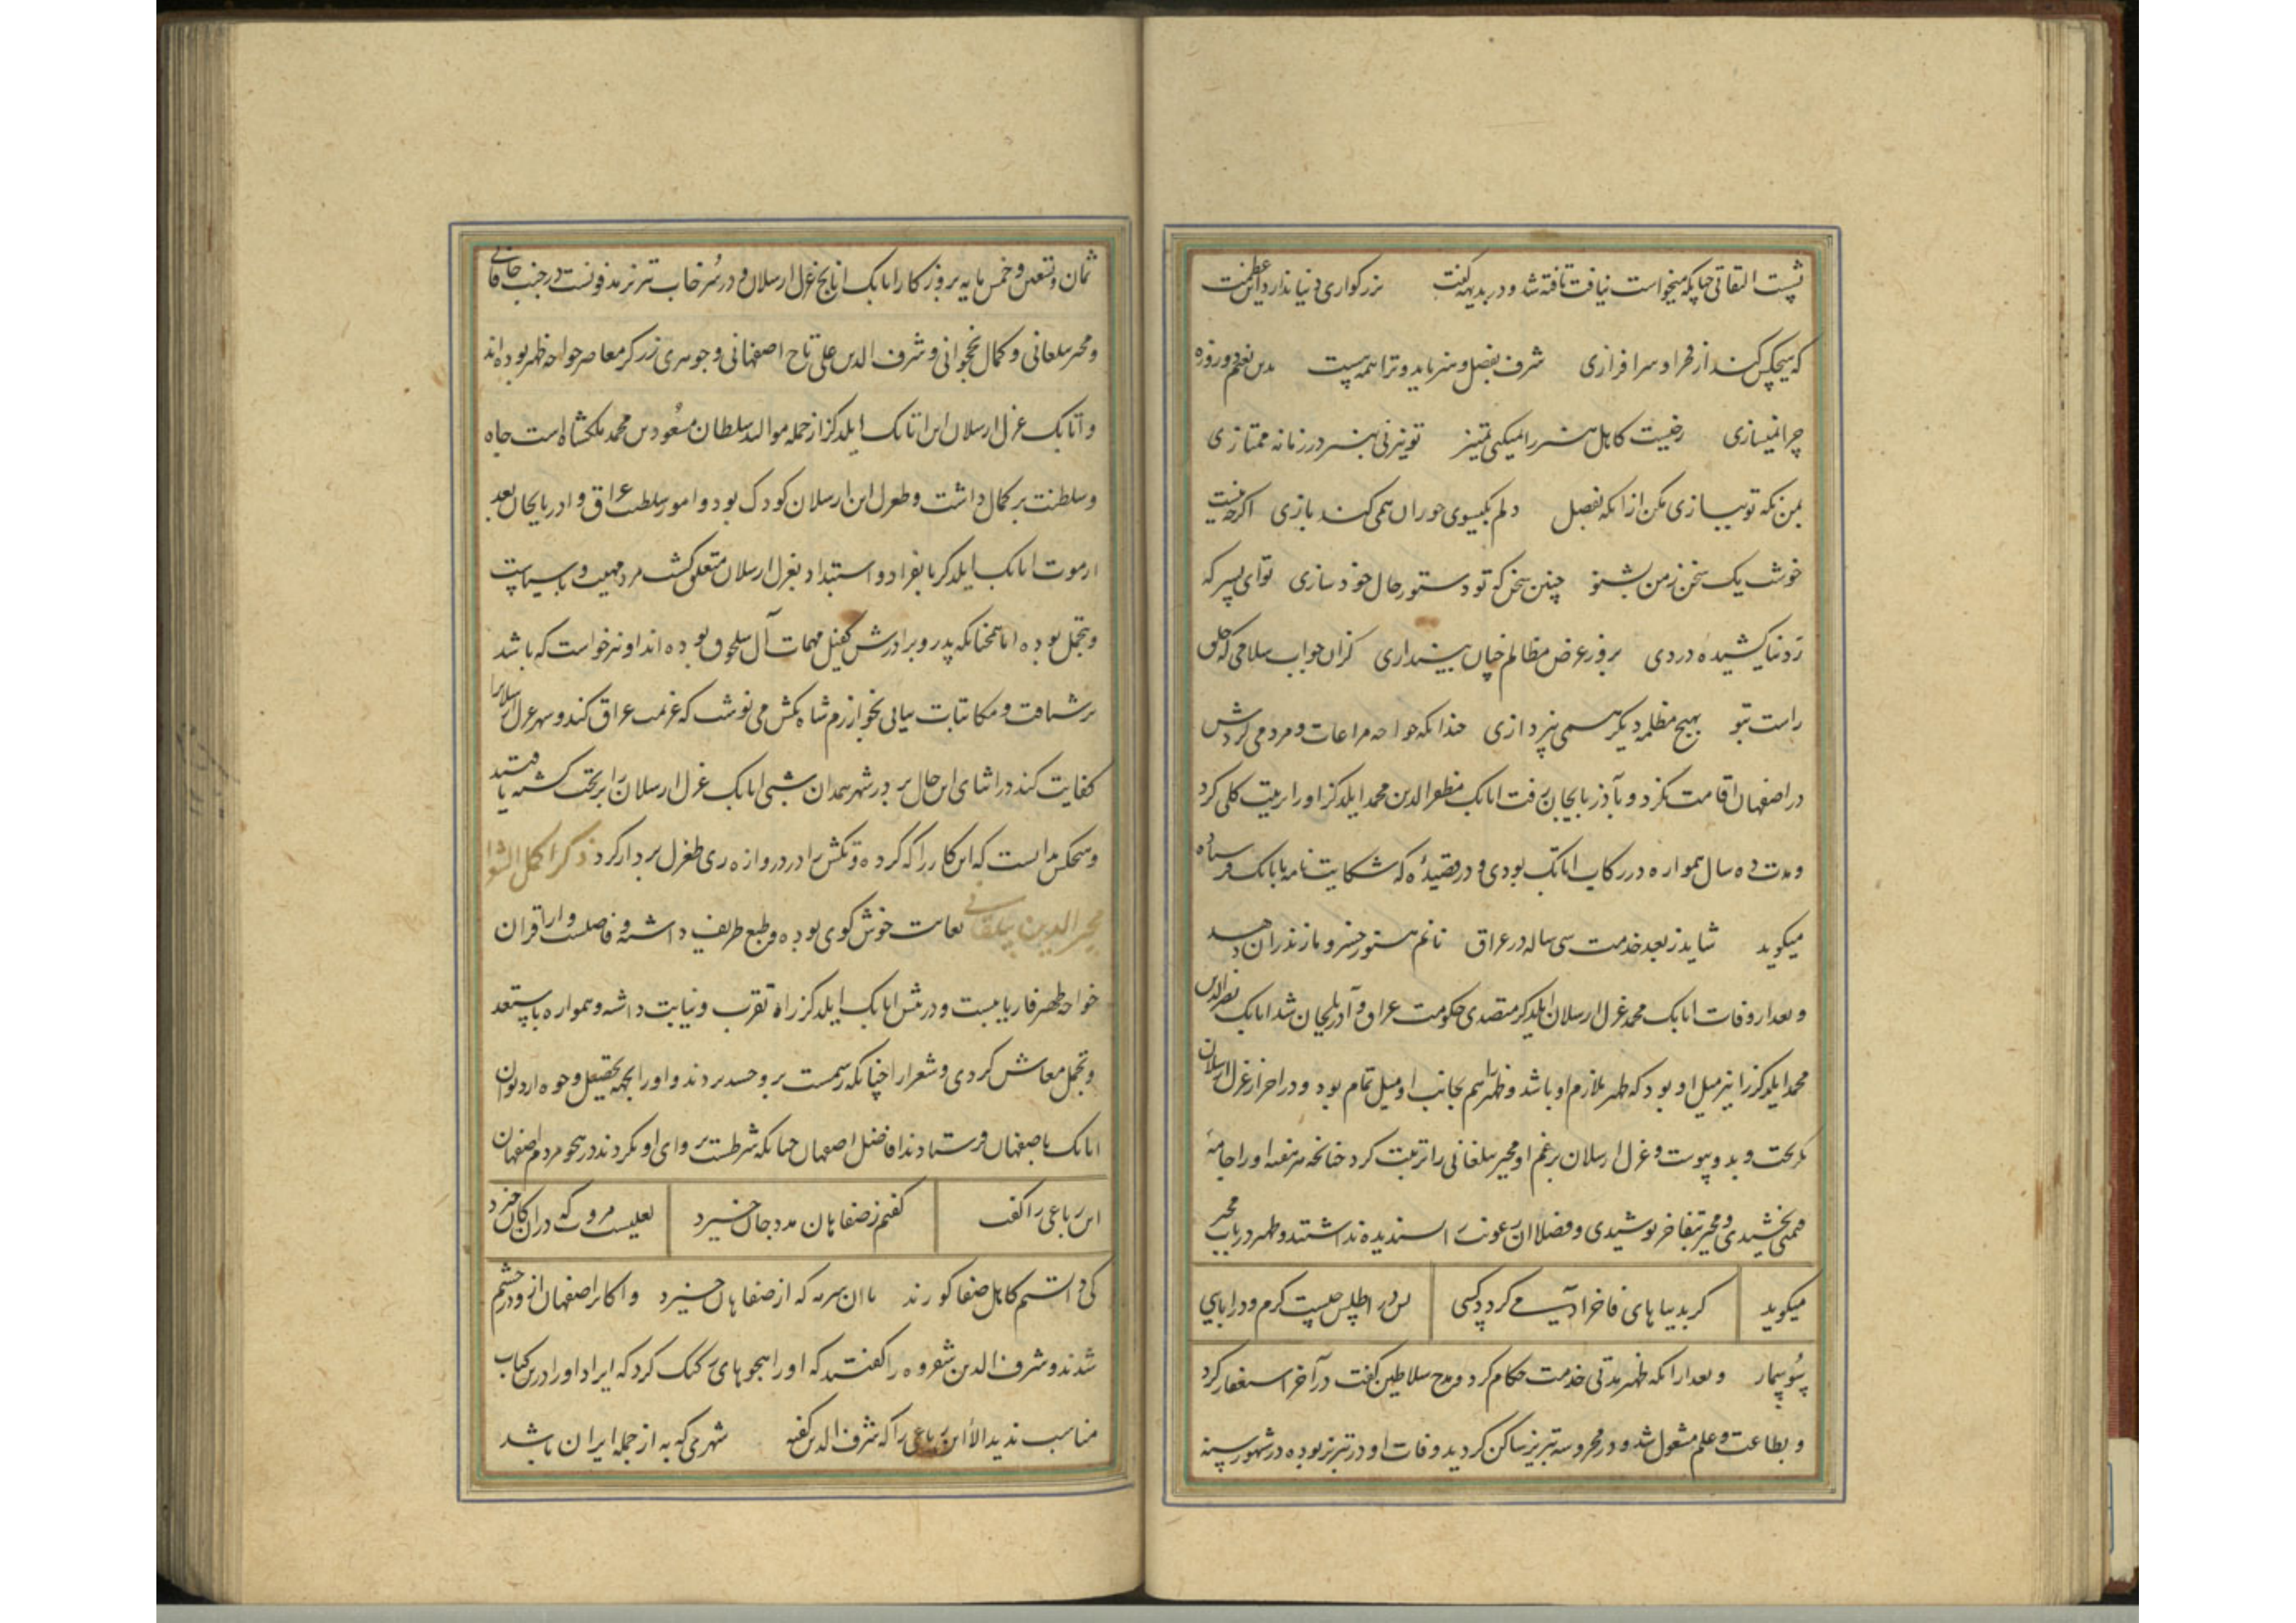 نیست التفاتی چنانکه میخواست نیافت تافته شد و در بدیهه گفت بزرگواری دنیا ندارد آن عظمت
که هیچکس کند از فخر او سرافرازی شرف بفضل و هنر باید و ترا همه هست بدین نعیم دو روزه
چرا نمیسازی ز چیست کاهل هنر را نمیکنی تمیز تو نیز نی بهنر در زمانه ممتازی
بمن نگه تو ببازی مکن از آنکه بفضل دلم بگیسوی حوران همی کند بازی اگرچه نیست
خوشت یک سخن ز من بشنو چنین سخن که تو دستور حال خود سازی تو ای پسر که
ز دنیا کشیده دردی بروز عرض مظالم چنان بیندازی کزان جواب سلامی که خلق
راست بتو بهیچ مظلمه دیگر همی نپردازی چندانکه خواجه مراعات و مردمی کردش
در اصفهان اقامت نکرد و بآذربایجان رفت اتابک مظفرالدین محمد ایلدکز او را تربیت کلی کرد
و مدت ده سال همواره در رکاب اتابک بودی و در قصیده که شکایت نامه باتابک فرستاده
میگوید شاید ز بعد خدمت سی ساله در عراق نانم هنوز خسرو مازندران دهد
و بعد از وفات اتابک محمد قزل ارسلان ایلدکز متصدی حکومت عراق و آذربایجان شد اتابک نصرالدین
محمد ایلدکز را نیز میل او بود که ظهیر ملازم او باشد و ظهیر هم بجانب او میل تمام بود و در آخر از قزل ارسلان
بگریخت و بدو پیوست و قزل ارسلان برغم او مجیر بیلقانی را تربیت کرد چنانچه هر هفته او را جامه
قیمتی بخشیدی و مجیر بتفاخر پوشیدی و فضلا آن رعونت را پسندیده نداشتند و ظهیر در باب مجیر
میگوید گر بدیباهای فاخر آدمی گردد کسی پس در اطلس چیست گرگ و در عبایی
سوسمار و بعد از آنکه ظهیر مدتی خدمت حکام کرد و مدح سلاطین گفت در آخر استغفار کرد
و بطاعت و علم مشغول شد و در محروسه تبریز ساکن گردید وفات او در تبریز بوده در شهور سنه
ثمان و تسعین و خمس مایه بروزگار اتابک قزل ارسلان و در سرخاب تبریز مدفونست در جنب خاقانی
و مجیر بیلقانی و کمال نخجوانی و شرف الدین علی تاج اصفهانی و جوهری زرگر معاصر خواجه ظهیر بوده‌اند
و اتابک قزل ارسلان ابن اتابک ایلدکز از جمله موالید سلطان مسعود بن محمد ملکشاه است جاه
و سلطنت بر کمال داشت و طغرل ابن ارسلان کودک بود و امور سلطنت عراق و آذربایجان بعد
از موت اتابک ایلدکز بانفراد و استبداد بقزل ارسلان متعلق گشت مرد مهیب و باسیاست
و تجمل بوده اما همچنانکه پدر و برادرش کفیل مهمات آل سلجوق بوده‌اند او نیز خواست که باشد
برنتافت و مکاتبات پیاپی بخوارزم شاه تکش می نوشت که عزیمت عراق کند و شر قزل ارسلان را
کفایت کند در اثنای این حال بر در شهر همدان شبی اتابک قزل ارسلان را بر تخت کشته یافتند
و هیچکس ندانست که این کار را که کرده و تکش را در دروازه ری طغرل بر دار کرد ذکر اکمل الشعرا
مجیرالدین بیلقانی بغایت خوش گوی بوده و طبع ظریف داشته و فاضلست و از اقران
خواجه ظهیر فاریابیست و در پیش اتابک ایلدکز راه تقرب و نیابت داشته و همواره با استعداد
و تجمل معاش کردی و شعرا را چنانکه رسمست برو حسد بردند و او را بجهة تحصیل وجوه از دیوان
اتابک باصفهان فرستادند افاضل اصفهان چنانکه شرطست پروای او نکردند در هجو مردم اصفهان
این رباعی را گفت گفتم ز صفاهان مدد جان خیزد لعلیست مروت که از آن کان خیزد
کی دانستم کاهل صفاهان کورند با آن سرمه که از صفاهان خیزد و اکابر اصفهان ازو در خشم
شدند و شرف الدین شفروه را گفتند که او را هجوهای رکیک کرد که ایراد او را در این کتاب
مناسب ندید الا این رباعی را که شرف الدین گفته شهری که به از جمله ایران باشد